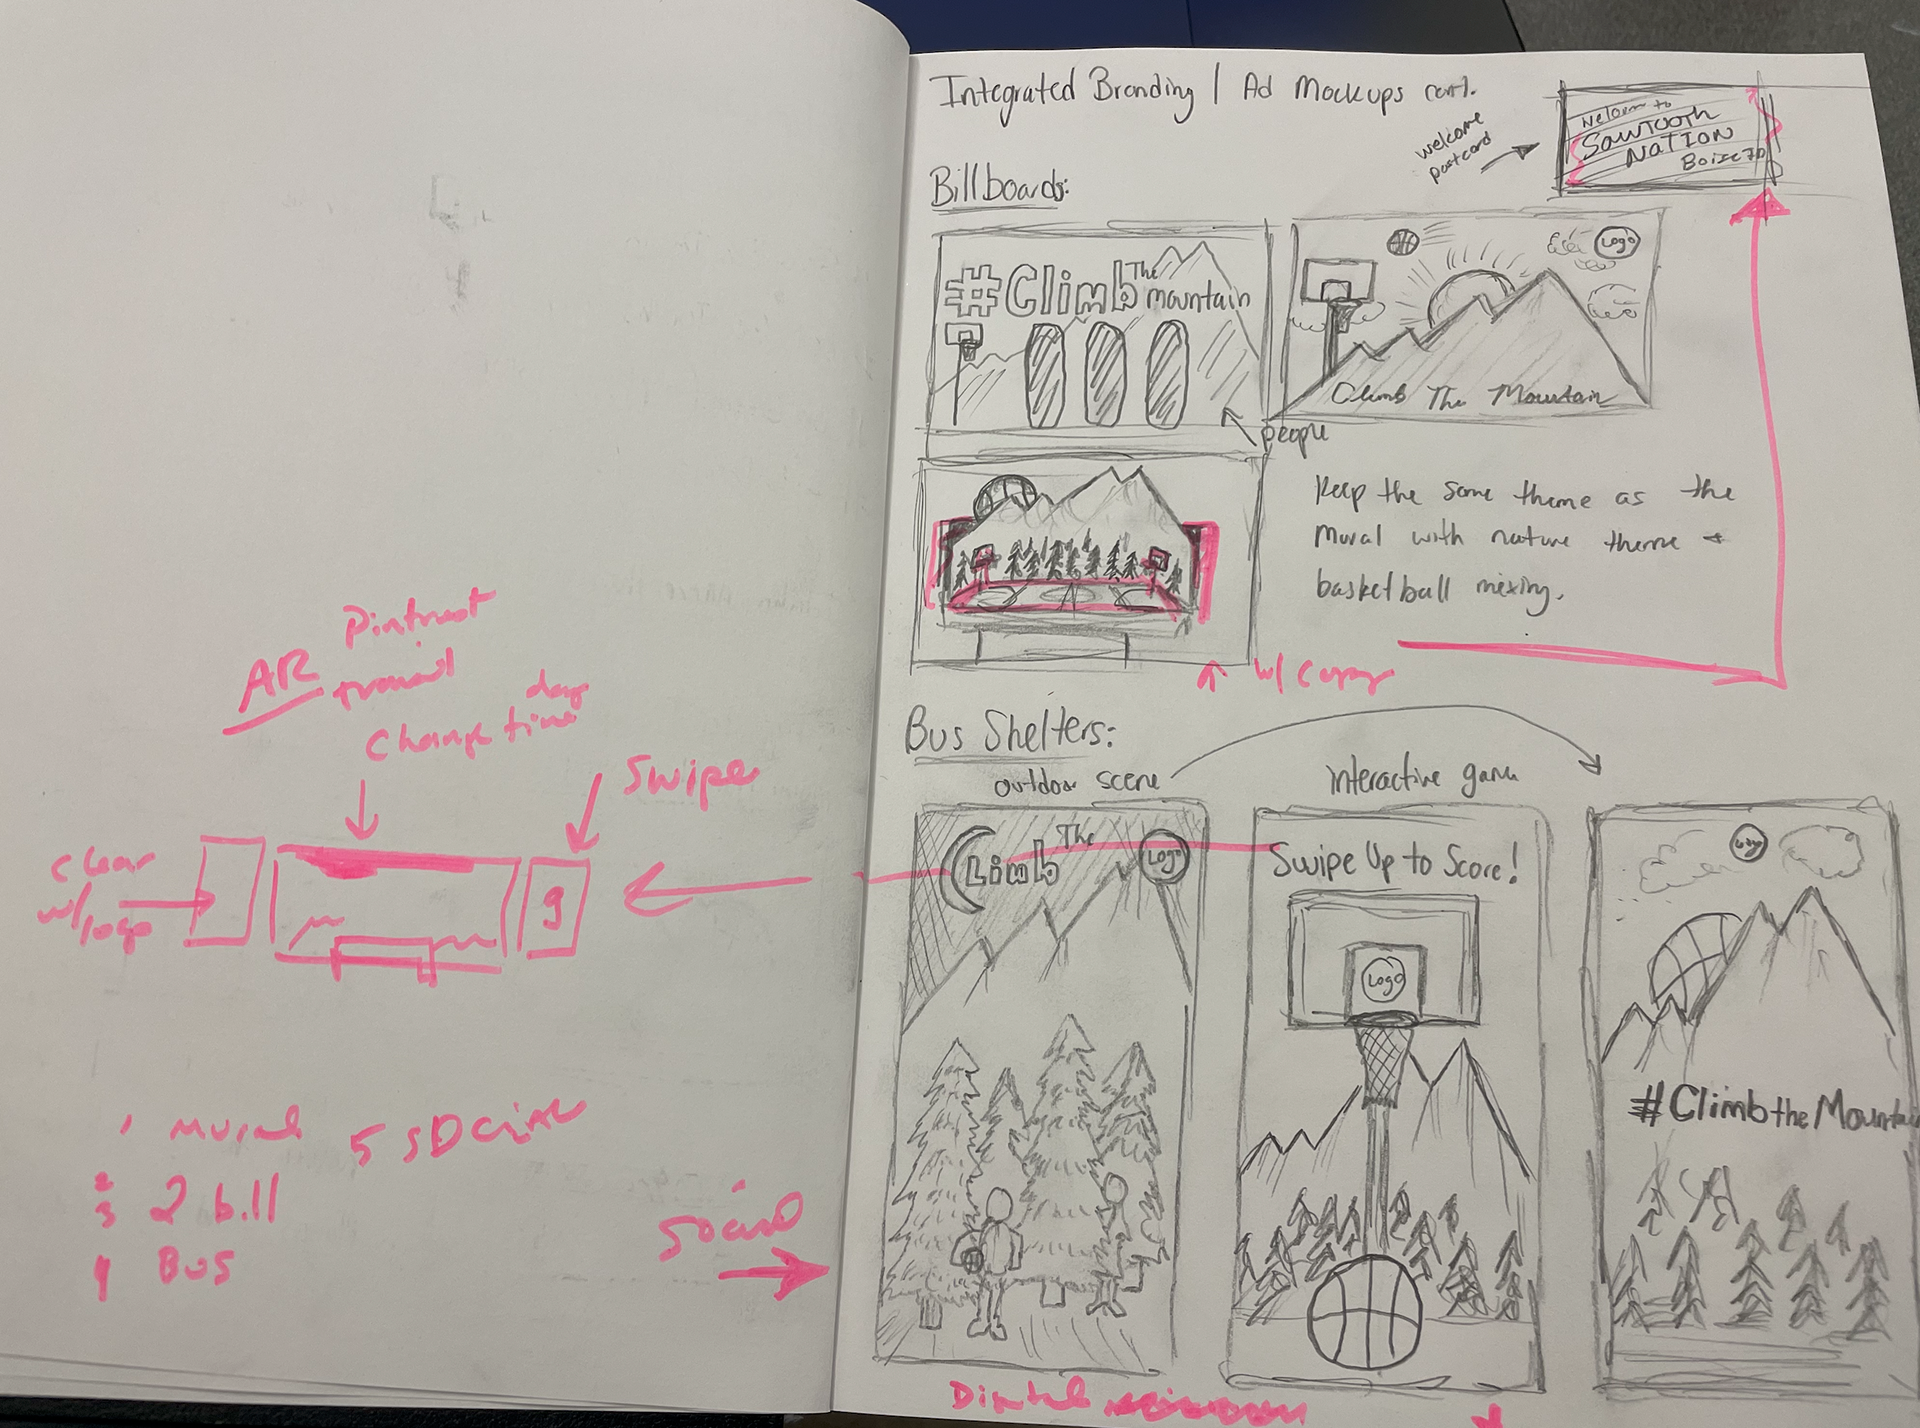 Integrated Branding | Ad Mockups cont.
welcome
postcard
Welcome to
Sawtooth
Nation
Boise ID
Billboards:
#Climb The
mountain
Logo
Climb The Mountain
people
Keep the same theme as the
mural with nature theme +
basketball mixing.
w/ copy
AR
change day
time
Swipe
clear
w/ logo
g
1 mural
2
3 2 bill
4 Bus
5
Social
Bus Shelters:
outdoor scene
interactive game
Climb The
Logo
Swipe Up to Score!
Logo
Logo
#ClimbtheMountain
Digital